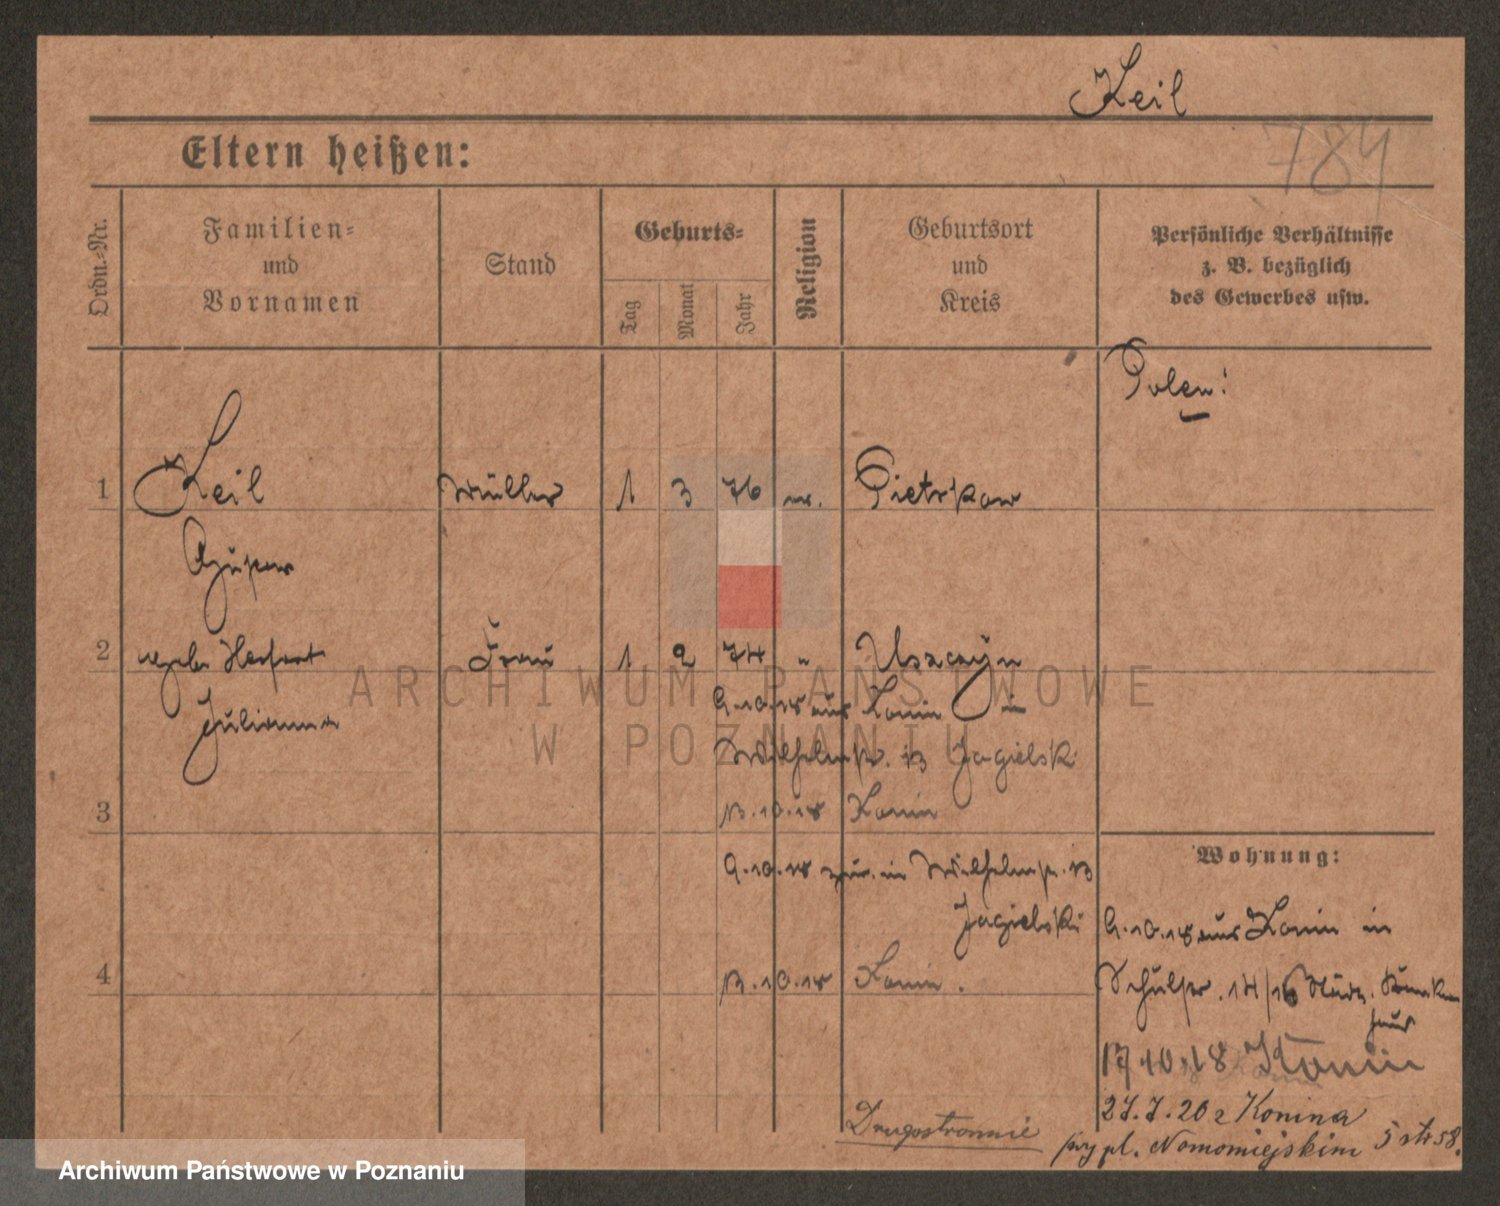 Keil
784
Eltern heißen:
Ordn.-Nr.
Familien-
und
Vornamen
Stand
Geburts-
Tag
Monat
Jahr
Religion
Geburtsort
und
Kreis
Persönliche Verhältnisse
z. B. bezüglich
des Gewerbes usw.
Polen!
1 Keil Müller 1 3 76 Pietrkow
2 Herfert Frau 1 2 74 "
Julianna
9.10.18 aus Konin in
Wilhelmstr. 13 Jagielski
3 13.10.18 Konin
Wohnung:
9.10.18 zur. in Wilhelmstr. 13
Jagielski
9.10.18 aus Konin in
4 13.10.18 Konin.
Schulstr. 14/16 Städt. Kranken
haus
17.10.18 Konin
27.7.20 z Konina
Drugostronnie
przy pl. Nowomiejskim 5 str 58.
ARCHIWUM PAŃSTWOWE
W POZNANIU
Archiwum Państwowe w Poznaniu